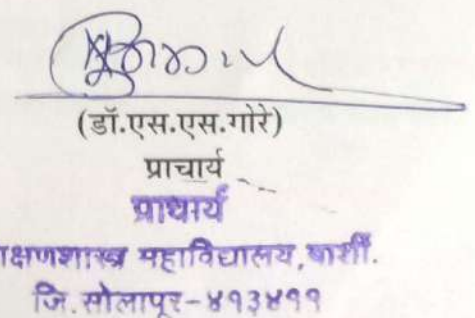 (डॉ.एस.एस.गोरे)
प्राचार्य
प्राचार्य
क्षणशास्त्र महाविद्यालय, बार्शी.
जि.सोलापूर-४१३४११